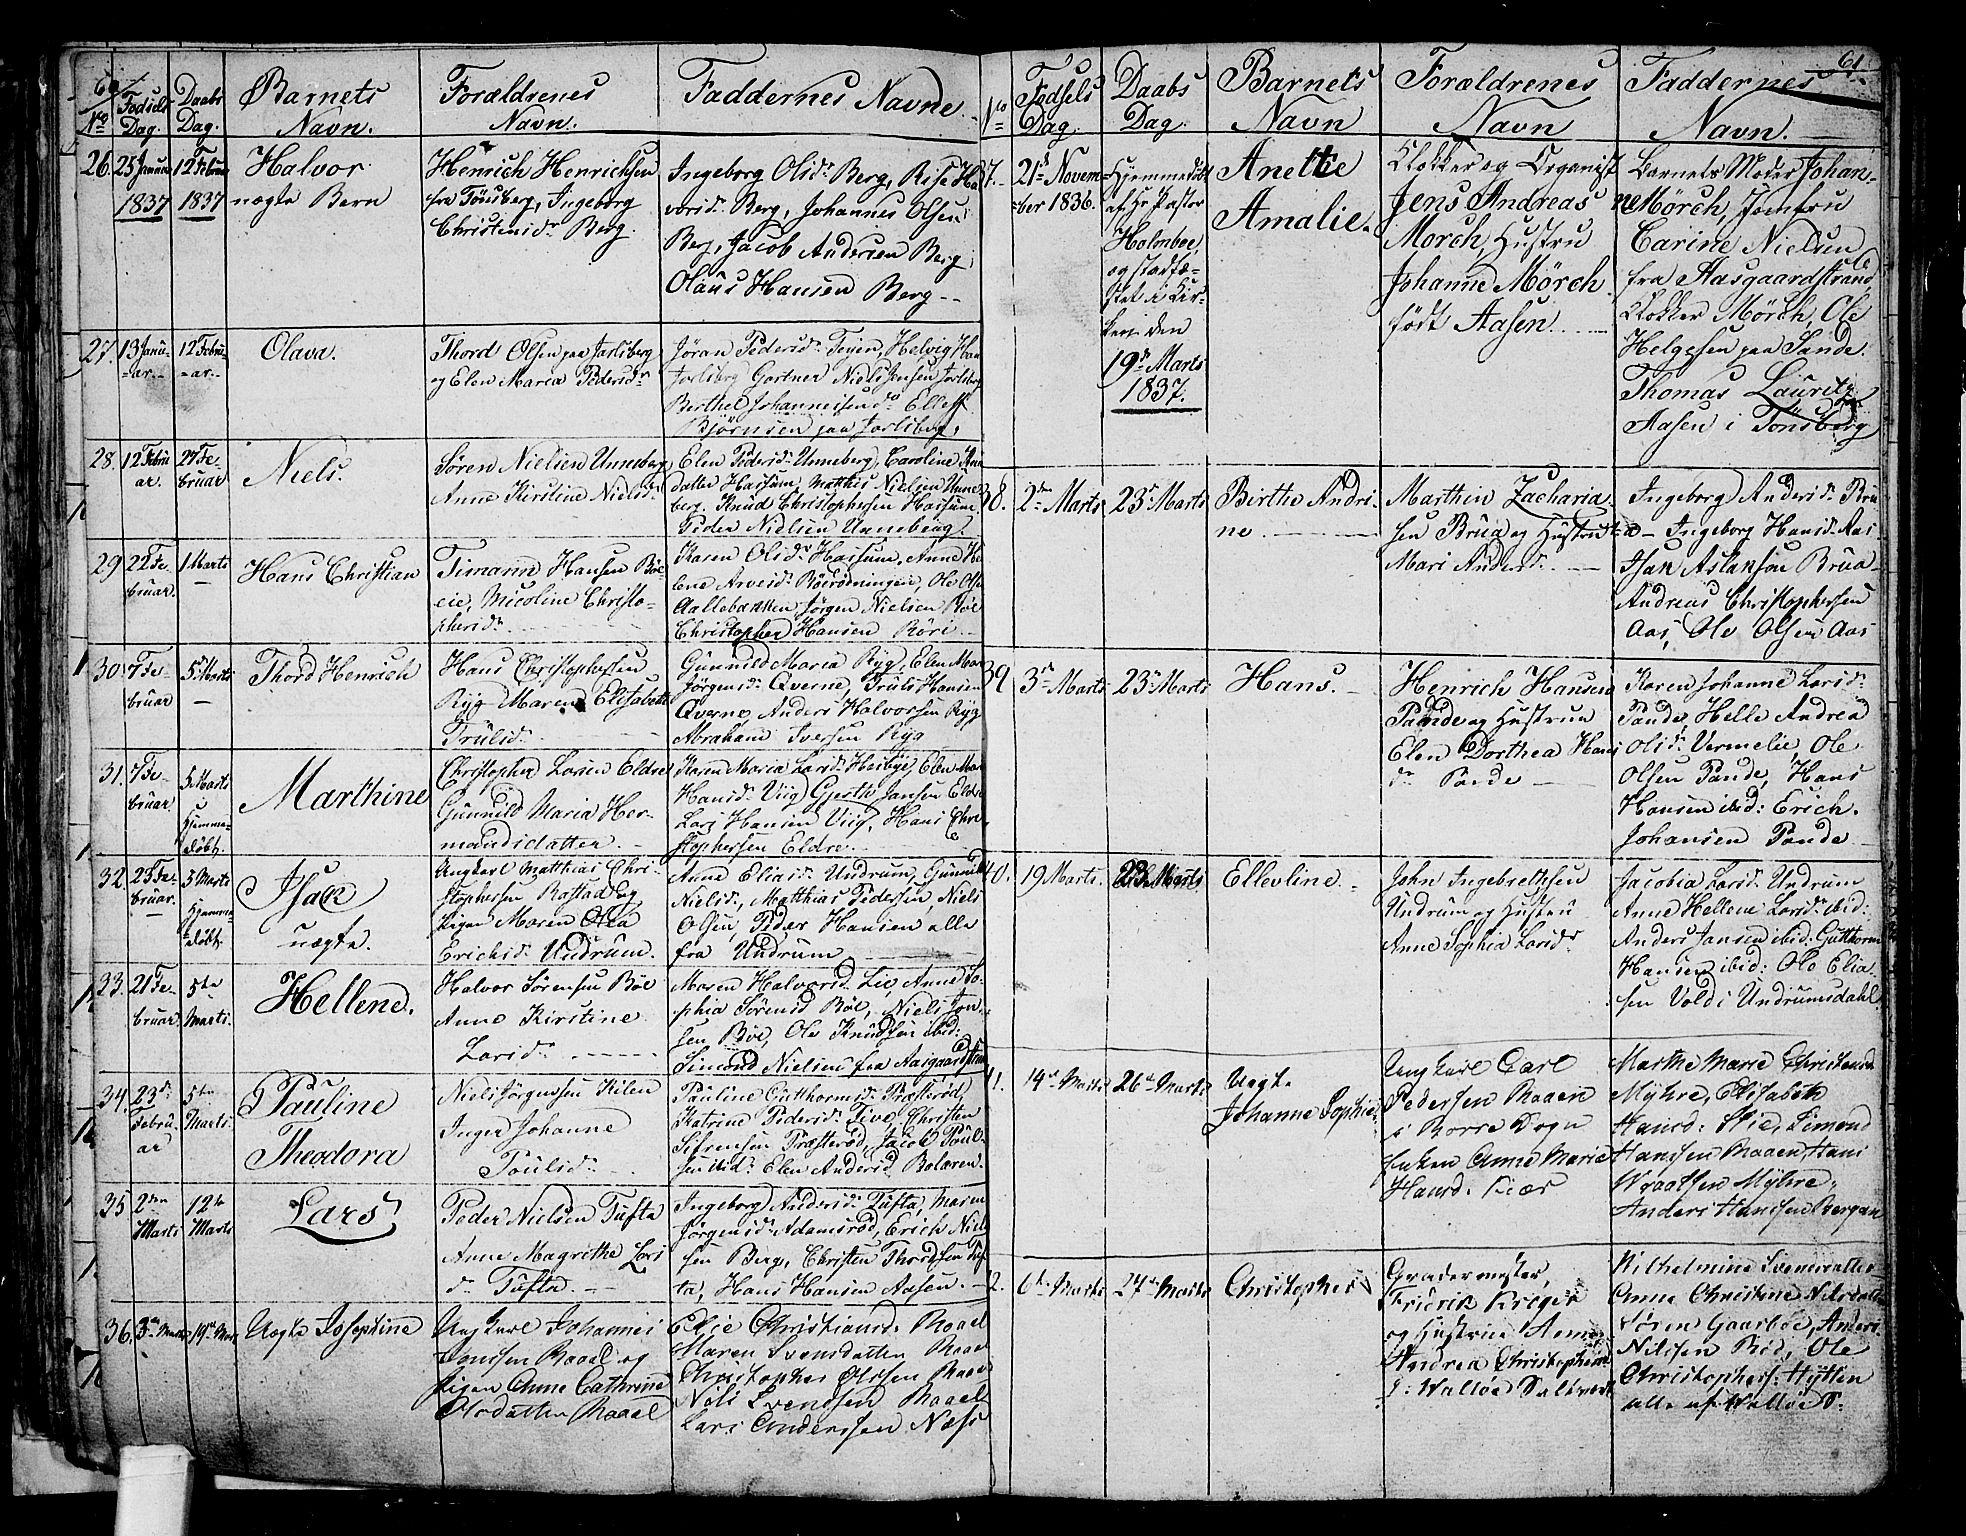 60
No
Fødsels Dag.
Daabs Dag.
Barnets Navn.
Forældrenes Navn.
Faddernes Navne.
26.
25 Januar 1837
12 Februar 1837
Halvor
uægte Barn
Henrich Henrichsen
fra Tönsberg, Ingeborg
Christensdr Berg.
Ingeborg Olsdr Berg,
Berg, Johannes Olsen
Berg, Jacob Andersen Berg
Olaus Hansen Berg
27.
13 Janu-
ar.
12 Febru-
ar.
Olava.
Thord Olsen paa Jarlsberg
og Elen Maria Pedersdr
Jöran Pedersdr Teien, Helvig
Jarlsberg Gartner Niels Jensen Jarlsberg
Berthel Johannesen Ellef
Björnsen paa Jarlsberg.
28.
12 Febru
ar.
27 Fe-
bruar.
Niels.
Sören Nielsen Unneberg
Anne Kirstine Nielsdr
Elen Pedersdr Unneberg, Caroline
datter Hassum, Mathis Nielsen Unne-
berg. Knud Christophersen Hassum
Peder Nielsen Unneberg.
29
22 Fe-
bruar.
1 Marts
Hans Christian
Timann Hansen Böe
eie, Nicoline Christo-
phersdr
Karen Olsdr Hassum, Anne He
lene Arvesdr Böerödningen, Ole Ols
Aallebakken Jörgen Nielsen Böe
Christopher Hansen Röri
30.
7 Fe-
bruar
5 Marts
Thord Henrich
Hans Christophersen
Ryg Maren Elisabeth
Trulsdr
Gunnild Maria Ryg, Elen Mar
Jörgensdr Qverne, Truls Hansen
Qverne Anders Halvorsen Ryg
Abraham Iversen Ryg
31.
7 Fe-
bruar
5 Marts
Hjemme-
döbt.
Marthine
Christopher Larsen Eldre
Gunnild Maria Her-
mandsdatter.
Karen Maria Larsdr Heibye, Elen Mar
Hansdr Viig Gjerth Jansen Eldre
Lars Hansen Viig, Hans Chri
stophersen Eldre
32.
25 Fe-
bruar.
5 Marts
Hjemme-
döbt.
Isak
uægte.
Ungkarl Matthias Chri-
stophersen Rastad og
Pigen Maren Olea
Erichsdr Undrum.
Anne Eliasdr Undrum, Gunnild
Nielsdr, Matthias Pedersen, Niels
Olsen, Peder Hansen alle
fra Undrum
33.
21 Fe-
bruar
5te
Marts.
Hellene.
Halvor Sörensen Böe
Anne Kirstine
Larsdr
Maren Halvorsd. Lie, Anne So-
phia Sörensd Böe, Niels Jon-
sen Böe, Ole Knudsen ibid:
Simond Nielsen fra Aasgaardstrand
34.
23d
Febru-
ar
5te
Marts.
Pauline
Theodora
Niels Jörgensen Kilen
Inger Johanne
Poulsdr
Pauline Gutthormsdr Præsteröd,
Katrine Pedersdr Five, Christen
Sifrensen Præsteröd, Jacob Poul-
sen ibid: Elen Andersd Bolæren.
35
2den
Marts
12te
Marts
Lars
Peder Nielsen Tufta
Anne Magrethe Lars
dr Tufta.
Ingeborg Andersdr Tufta, Maren
Jörgensdr Adamsröd, Erich Niel
sen Berg, Christen Thordsen Tuf-
ta, Hans Hansen Aasen.
36.
3die Marts
19de Marts
Uægte Josephine
Ungkarl Johannes
Jenssen Raael og
Pigen Anne Cathrine
Olsdatter Raael
Elie Christiansd. Raael
Maren Svensdatter Raael
Christopher Olssen Raael
Nils Svendsen Raael
Lars Anderssen Næss
61.
No
Födsels Dag.
Daabs Dag.
Barnets Navn
Forældrenes Navn
Faddernes Navn.
37.
21de Novem-
ber 1836.
Hjemmedöbt
af Hr Pastor
Holmboe,
og stadfæ-
stet i Kir-
ken den
19de Marts
1837.
Anette
Amalie.
Klokker og Organist
Jens Andreas
Mörch, Hustru
Johanne Mörch
födt Aasen
Barnets Moder Johan-
ne Mörch, Jomfru
Carine Nielsen
fra Aasgaardstrand,
Klokker Mörch, Ole
Helgesen paa Sande
Thomas Lauritz
Aasen i Tönsberg
38.
2den Marts
23de Marts
Birthe Andri-
ne.
Marthin Zacharia
sen Brua og Hustru
Mari Andersdr
Ingeborg Andersdr Bru
a- Ingeborg Hansdr Aas
Isak Aslaksen Brua
Andreas Christophersen
Aas, Ole Olsen Aas
39
3die Marts
23de Marts
Hans.
Henrich Hansen
Pande og Hustru
Elen Dorthea Hans
dr Pande
Karen Johanne Larsdr
Pande, Helle Andrea
Olsdr Vermelie, Ole
Olsen Pande, Hans
Hansen ibid: Erich
Johansen Pande
40.
19 Marts.
23 Marts
Ellevline.
John Ingebrethsen
Undrum og Hustru
Anne Sophia Larsdr
Jacobia Larsdr Undrum
Anne Hellene Larsdr ibid:
Anders Jansen ibid: Gutthorm
Hansen ibid: Ole Elia-
sen Vold i Undrumsdahl.
41.
14de Marts
26de Marts
Uægte
Johanne Sophie
Ungkarl Carl
Pedersen Raaen
i Borre Sogn
Enken Anne Marie
Hansd. Kiær
Marthe Marie Christensd
Myhre, Elisabeth
Hansd: Skie, Simond
Hanssen Raaen, Hans
Wraalsen Myhre,
Anders Hanssen Bergan
42.
6te Marts
24de Marts
Christopher
Gradermester,
Friderik Kröger
og Hustrue Anne
Andrea Christophersd
i Walløe Saltværk
Wilhelmine
Anne Christine Nilsdatter
Sören Gaarboe, Anders
Nilssen Röd, Ole
Christophers: Hytten
alle af Walløe S.